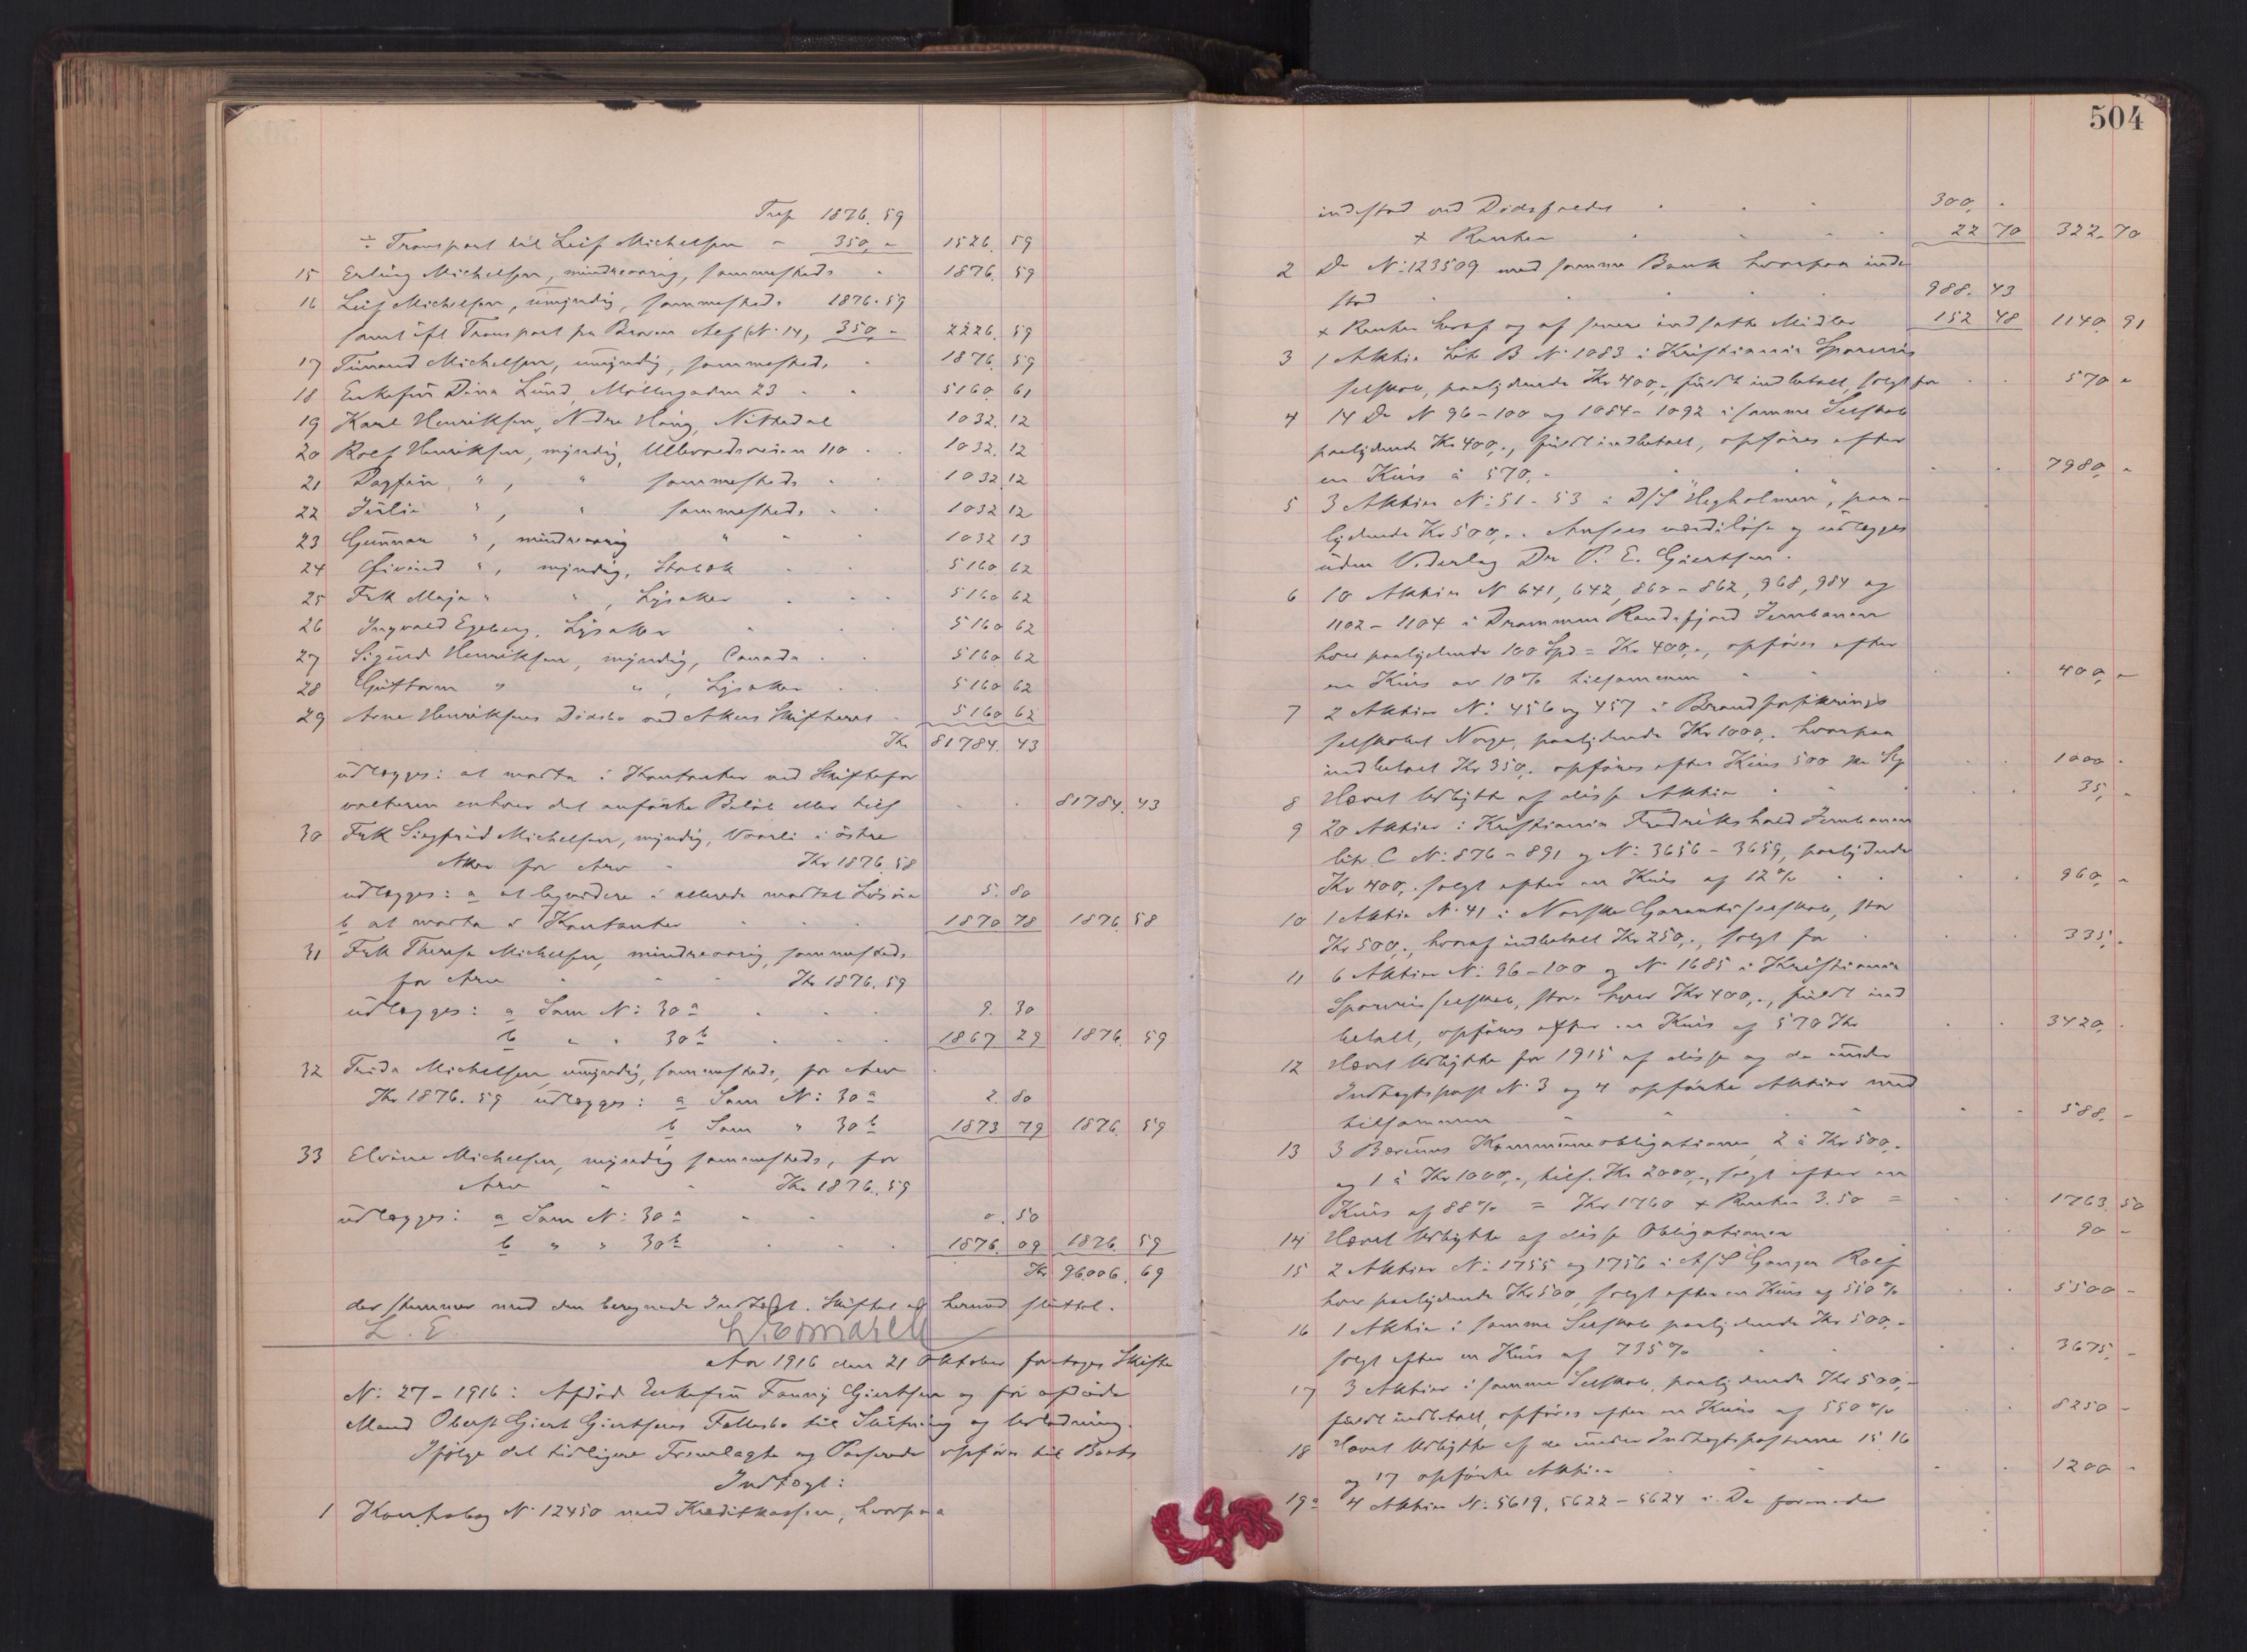 Trsp 1876.59
÷ Transport til Leif Michelsen - 350,- 1526. 59
15 Erling Michelsen, mindreaarig, sammesteds - 1876. 59
16 Leif Michelsen, umyndig, sammesteds 1876.59
samt ifl Transport fra Broren Alf (N: 14, 350,- 2226. 59
17 Michelsen, umyndig, sammesteds - 1876. 59
18 Enkefru Dina Lund, Møllergaden 23 - - 5160. 61
19 Karl Henriksen, Nedre Haug, Nittedal 1032. 12
20 Rolf Henriksen, myndig, Ullevoldsveien 110 . . 1032. 12
21 Dagfin " , " sammesteds . . 1032. 12
22 Julie " , " sammesteds . . 1032 12
23 Gunnar " , mindreaarig " - . 1032 13
24 Øivind " , myndig, Stabæk . . 5160 62
25 Frk Maja " " , Lysaker . . . 5160 62
26 Ingvald Egeberg, Lysaker - . . 5160 62
27 Sigurd Henriksen, myndig, Canada . . 5160. 62
28 Guttorm " " , Lysaker . . 5160 62
29 Arne Henriksens Dødsbo ved Akers Skifteret - 5160 62
Kr 81784. 43
udlægges: at modta i Kontanter ved Skiftefor
valteren enhver det anførte Beløb eller tils . . 81784. 43
30 Frk Sigfrid Michelsen, myndig, Vaarli i østre
Aker for Arv - Kr 1876.58
udlægges: a at likvidere i allerede modtat Løsøre 5. 80
b at modta i Kontanter . . . 1870 78 1876. 58
31 Frk Therese Michelsen, mindreaarig, sammesteds
for Arv - - - Kr 1876.59
udlægges: a Som N: 30a . . . 9. 30
b " " 30b . . . 1867 29 1876. 59
32 Frida Michelsen umyndig, sammesteds, for Arv
Kr 1876.59 udlægges: a Som N: 30a 2. 80
b Som " 30b 1873 79 1876. 59
33 Michelsen, myndig sammesteds, for
Arv - - Kr 1876.59
udlægges: a Som N: 30a - - 0. 50
b " " 30b . . . 1876. 09 1876. 59
Kr 96006. 69
der stemmer med den beregnede Indtægt. Skiftet er hermed sluttet.
L. E.
Aar 1916 den 21 Oktober foretoges Skifte
N: 27-1916: Afdød Enkefru Fanny Giertsen og før afdøde
Mand Oberst Giert Giertsens Fællesbo til Skiftning og Utlodning.
Ifølge det tidligere Fremlagte og Passerede opføres til Boets
Indtægt:
1 Kontrabog N: 12450 med Kreditkassen, hvorpaa
504
indestod ved Dødsfaldet . . . 300, -
+ Renter . . . . 22 70 322. 70
2 Do N: 123509 med samme Bank hvorpaa inde
stod . . . . 988. 43
+ Renter heraf og af senere indsatte Midler 152 48 1140. 91
3 1 Aktie Litr B N: 1083 i Kristiania Sporveis
selskab, paalydende Kr 400,-, fuldt indbetalt, solgt for . . 570 -
4 14 Do N 96-100 og 1084-1092 i samme Selskab
paalydende Kr 400,-, fuldt indbetalt, opføres efter
en Kurs à 570,- . . . . 7980, -
5 3 Aktier N: 51-53 i D/S "Hegholmen", paa-
lydende Kr 500,-. Ansees værdiløse og udlægges
uden Vederlag Dr P. E. Giertsen.
6 10 Aktier N 641, 642, 860-862, 968, 984 og
1102-1104 i Drammen Randsfjord Jernbanen
hver paalydende 100 Spd = Kr 400,-, opføres efter
en Kurs av 10% tilsammen - . . . 400, -
7 2 Aktier N: 456 og 457 i Brandforsikrings
selskabet Norge, paalydende Kr 1000,- hvorpaa
indbetalt Kr 350,- opføres efter Kurs 500 pr Stk . . 1000 -
8 Hævet Utbytte af disse Aktier . . . . . 35, -
9 20 Aktier i Kristiania Fredrikshald Jernbanen
litr. C N: 876-891 og N: 3656-3659, paalydende
Kr 400,- solgt efter en Kurs af 12% . . . . 960, -
10 1 Aktie N: 41 i Norske Garantiselskab, stor
Kr 500,-, hvoraf indbetalt Kr 250,-, solgt for . . . 335, -
11 6 Aktier N: 96-100 og N: 1685 i Kristiania
Sporveisselskab, store hver Kr 400,-, fuldt ind
betalt, opføres efter en Kurs af 570 Kr . . 3420, -
12 Hævet Utbytte for 1915 af disse og de under
Indtægtspost N: 3 og 4 opførte Aktier med
tilsammen - - - - - - 588. -
13 3 Bærums Kommuneobligationer, 2 à Kr 500,-
og 1 à Kr 1000,-, tils. Kr 2000,-, solgt efter en
Kurs af 88% = Kr 1760 + Renter 3.50 = . . 1763. 50
14 Hævet Utbytte af disse Obligationer . . 90 -
15 2 Aktier N: 1755 og 1756 i A/S Ganger Rolf
hver paalydende Kr 500, solgt efter en Kurs af 550% . . 5500 -
16 1 Aktie i samme Selskab paalydende Kr 500,-
solgt efter en Kurs af 735% . . . . 3675, -
17 3 Aktier i samme Selskab, paalydende Kr 500,-
fuldt indbetalt, opføres efter en Kurs af 550% . . 8250 -
18 Hævet Utbytte af de under Indtægtsposterne 15, 16
og 17 opførte Aktier - - . . . 1200 -
19a 4 Aktier N: 5619, 5622-5624 i De forenede